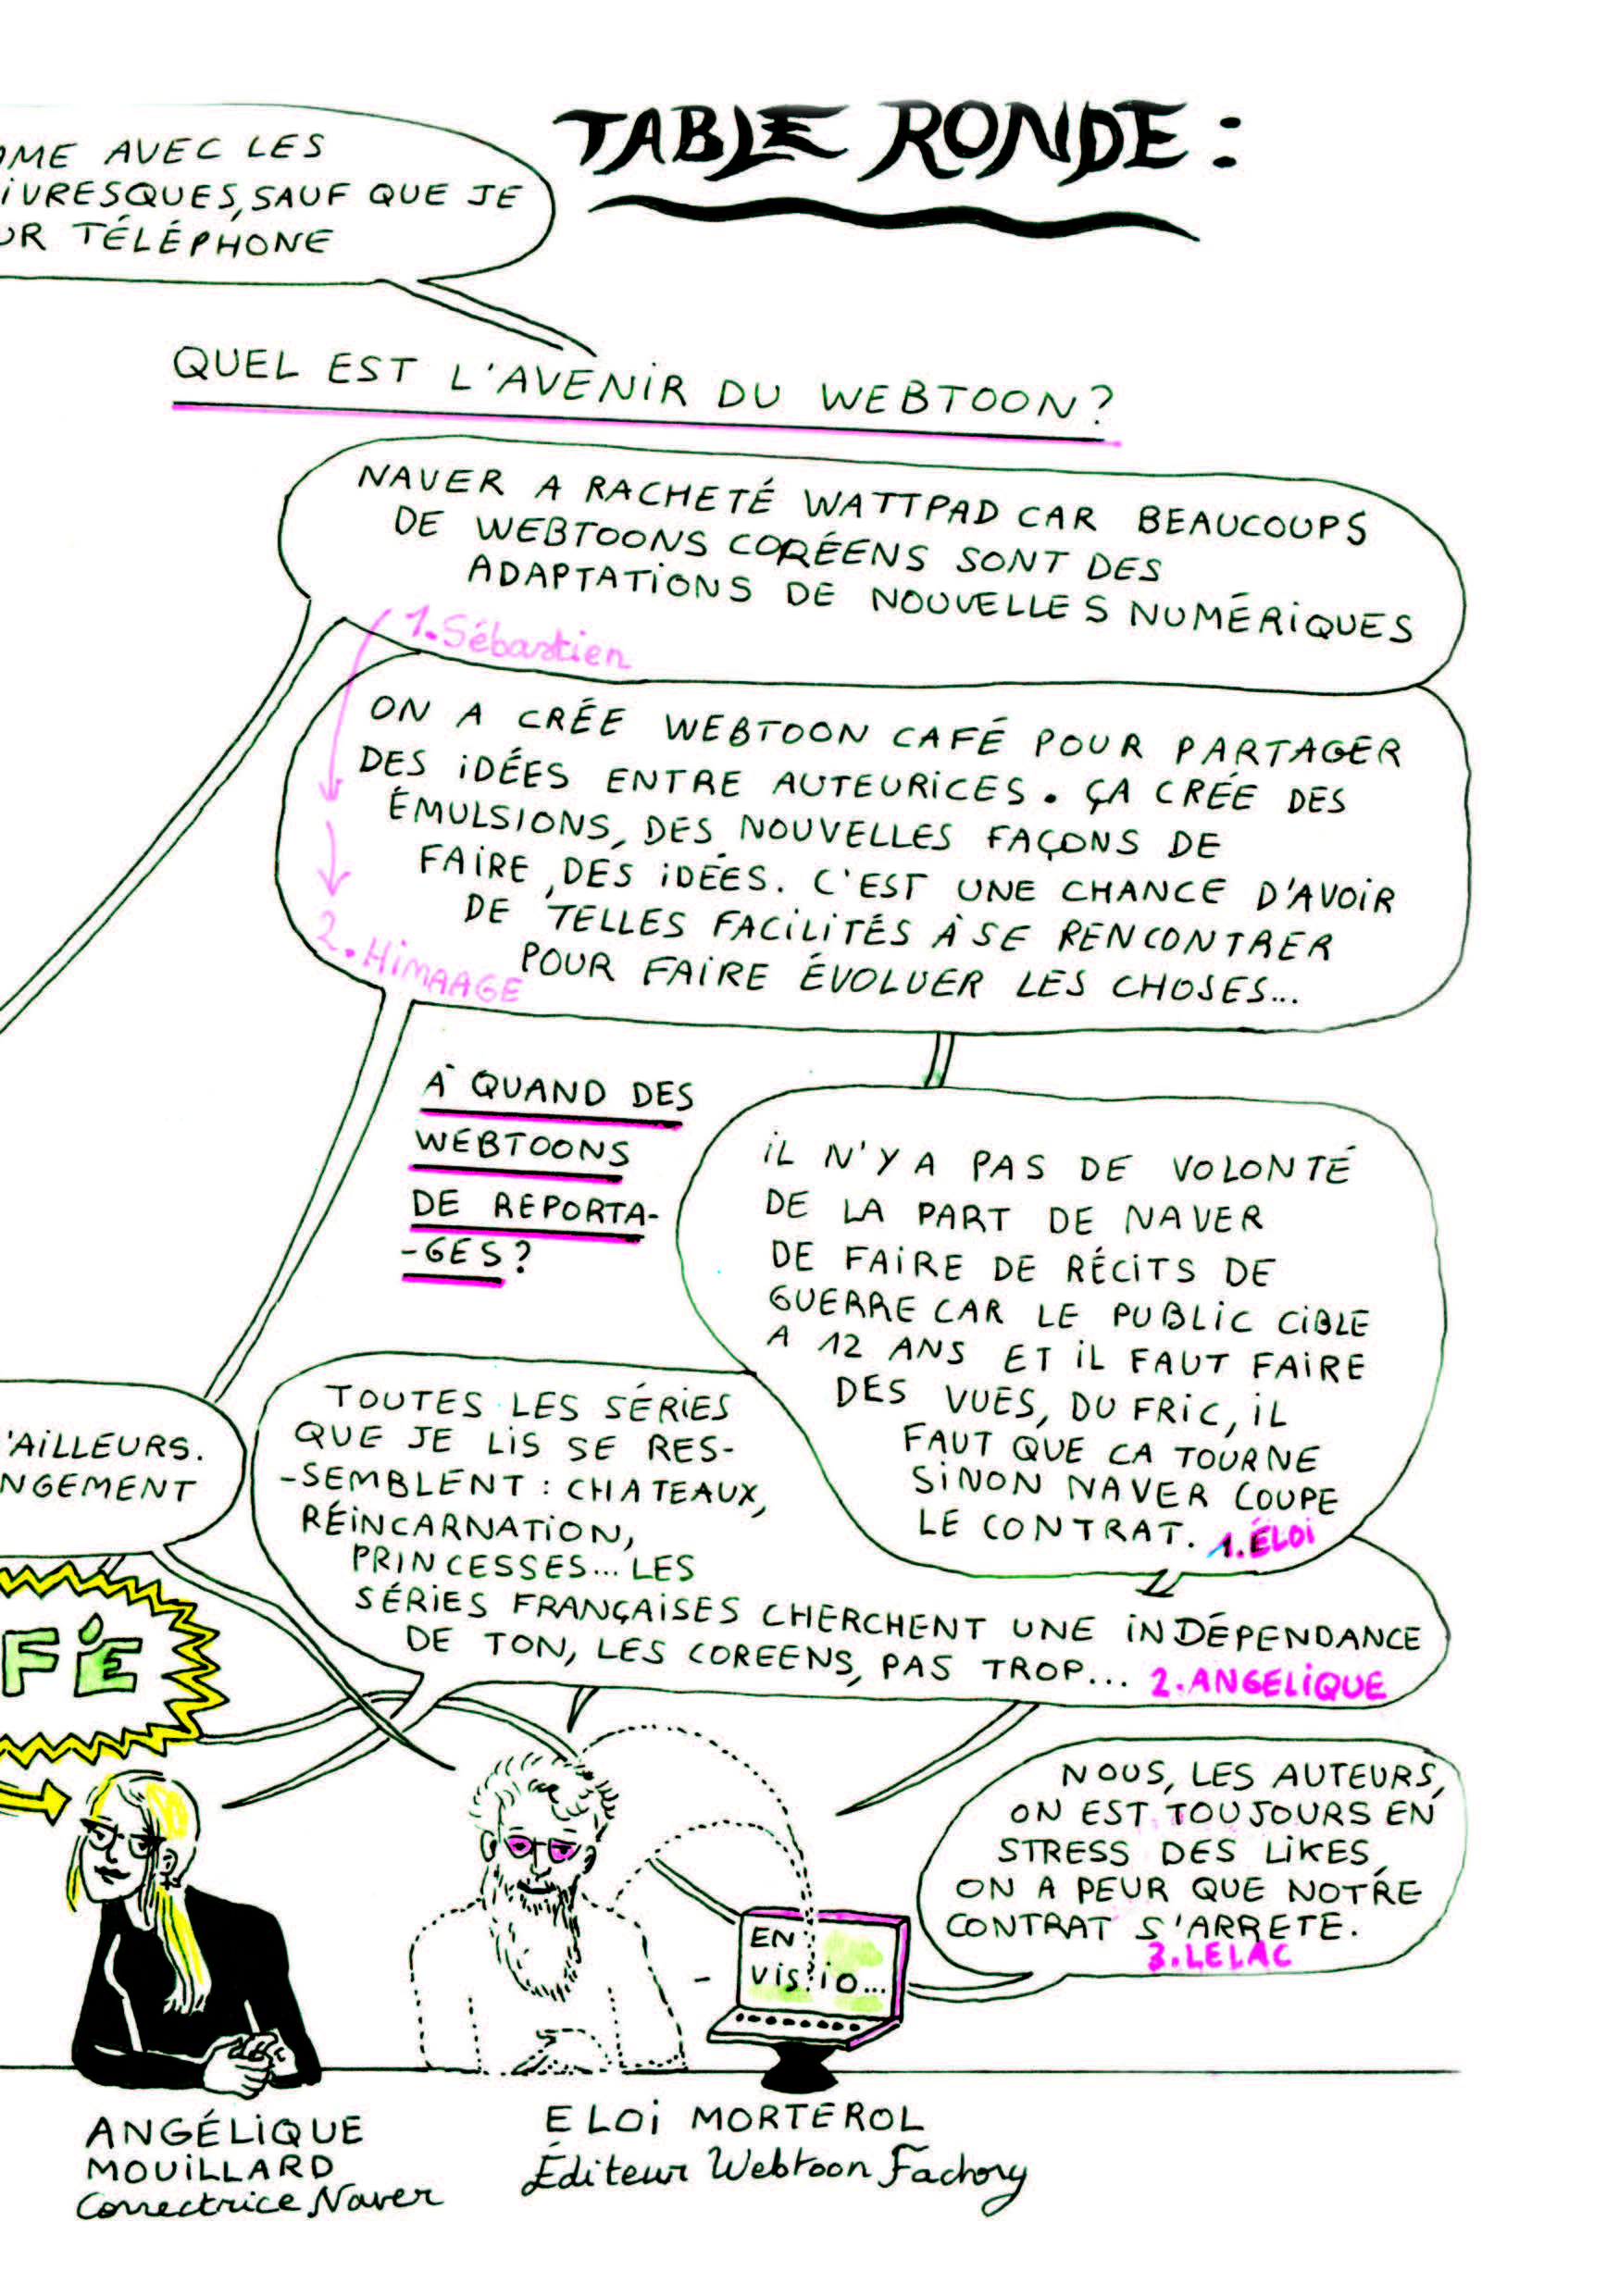 TABLE RONDE :
AVEC LES
SAUF QUE JE
TÉLÉPHONE
QUEL EST L'AVENIR DU WEBTOON ?
NAVER A RACHETÉ WATTPAD CAR BEAUCOUPS
DE WEBTOONS CORÉENS SONT DES
ADAPTATIONS DE NOUVELLES NUMÉRIQUES
1. Sébastien
ON A CRÉE WEBTOON CAFÉ POUR PARTAGER
DES IDÉES ENTRE AUTEURICES. ÇA CRÉE DES
ÉMULSIONS, DES NOUVELLES FAÇONS DE
FAIRE, DES IDÉES. C'EST UNE CHANCE D'AVOIR
DE TELLES FACILITÉS À SE RENCONTRER
POUR FAIRE ÉVOLUER LES CHOSES...
2. HIMAAGE
À QUAND DES
WEBTOONS
DE REPORTA-
-GES ?
IL N'Y A PAS DE VOLONTÉ
DE LA PART DE NAVER
DE FAIRE DE RÉCITS DE
GUERRE CAR LE PUBLIC CIBLE
A 12 ANS ET IL FAUT FAIRE
DES VUES, DU FRIC, IL
FAUT QUE CA TOURNE
SINON NAVER COUPE
LE CONTRAT. 1. ÉLOI
'AILLEURS.
NGEMENT
TOUTES LES SÉRIES
QUE JE LIS SE RES-
-SEMBLENT : CHATEAUX,
RÉINCARNATION,
PRINCESSES... LES
SÉRIES FRANÇAISES CHERCHENT UNE INDÉPENDANCE
DE TON, LES COREENS, PAS TROP... 2. ANGELIQUE
FÉ
NOUS, LES AUTEURS,
ON EST TOUJOURS EN
STRESS DES LIKES,
ON A PEUR QUE NOTRE
CONTRAT S'ARRETE.
3. LELAC
EN
VISIO...
ANGÉLIQUE
MOUILLARD
Correctrice Naver
ELOI MORTEROL
Éditeur Webtoon Factory